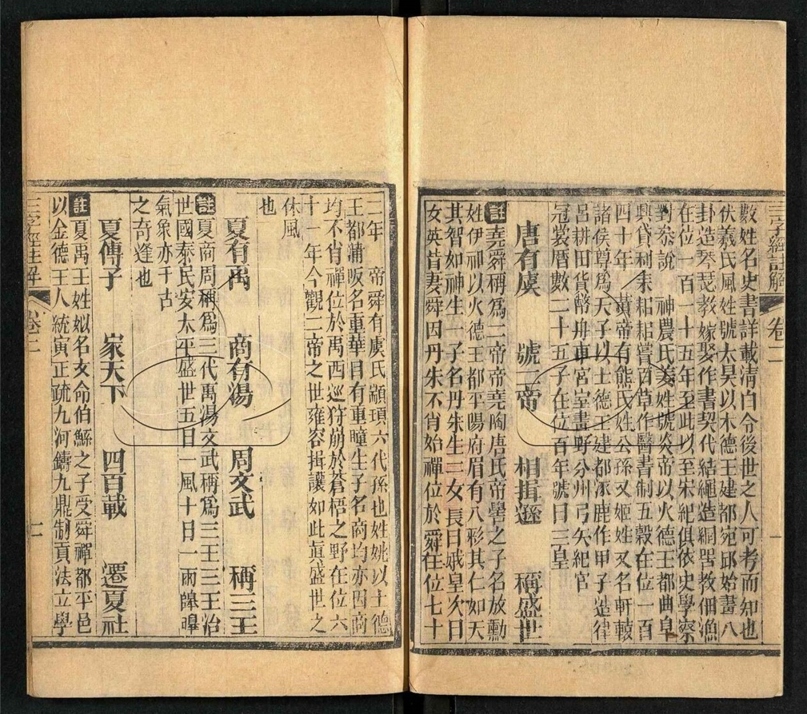 三字經註解 卷二 一
數姓名史書詳載清白令後世之人可考而知也
伏羲氏風姓號太昊以木德王建都宛邱始畫八
卦造琴瑟教嫁娶作書契代結繩造網罟教佃漁
在位一百一十五年至此以至宋紀俱依史學察
對參說 神農氏姜姓號炎帝以火德王都曲阜
興貸利耒耜耕嘗百草作醫書制五穀在位一百
四十年 黃帝有熊氏姓公孫又姬姓又名軒轅
諸侯尊爲天子以土德王建都涿鹿作甲子造律
呂耕田貨幣舟車宮室畫野分州弓矢紀官
冠裳曆數二十五子在位百年號曰三皇
唐有虞 號二帝 相揖遜 稱盛世
註堯舜稱爲二帝帝堯陶唐氏帝嚳之子名放勳
姓伊祁以火德王都平陽府眉有八彩其仁如天
其智如神生一子名丹朱生二女長曰娥皇次曰
女英皆妻舜因丹朱不肖始禪位於舜在位七十
二年 帝舜有虞氏顓頊六代孫也姓姚以土德
王都蒲阪名重華目有重瞳生子名商均亦因商
均不肖禪位於禹西巡狩崩於蒼梧之野在位六
十一年今觀二帝之世雍容揖讓如此眞盛世之
休風
也
夏有禹 商有湯 周文武 稱三王
註夏商周稱爲三代禹湯文武稱爲三王三王治
世國泰民安太平盛世五日一風十日一雨皞皞
氣象亦千古
之奇逢也
夏傳子 家天下 四百載 遷夏社
註夏禹王姓姒名文命伯鯀之子受舜禪都平邑
以金德王人統寅正疏九河鑄九鼎制貢法立學
三字經註解 卷二 二